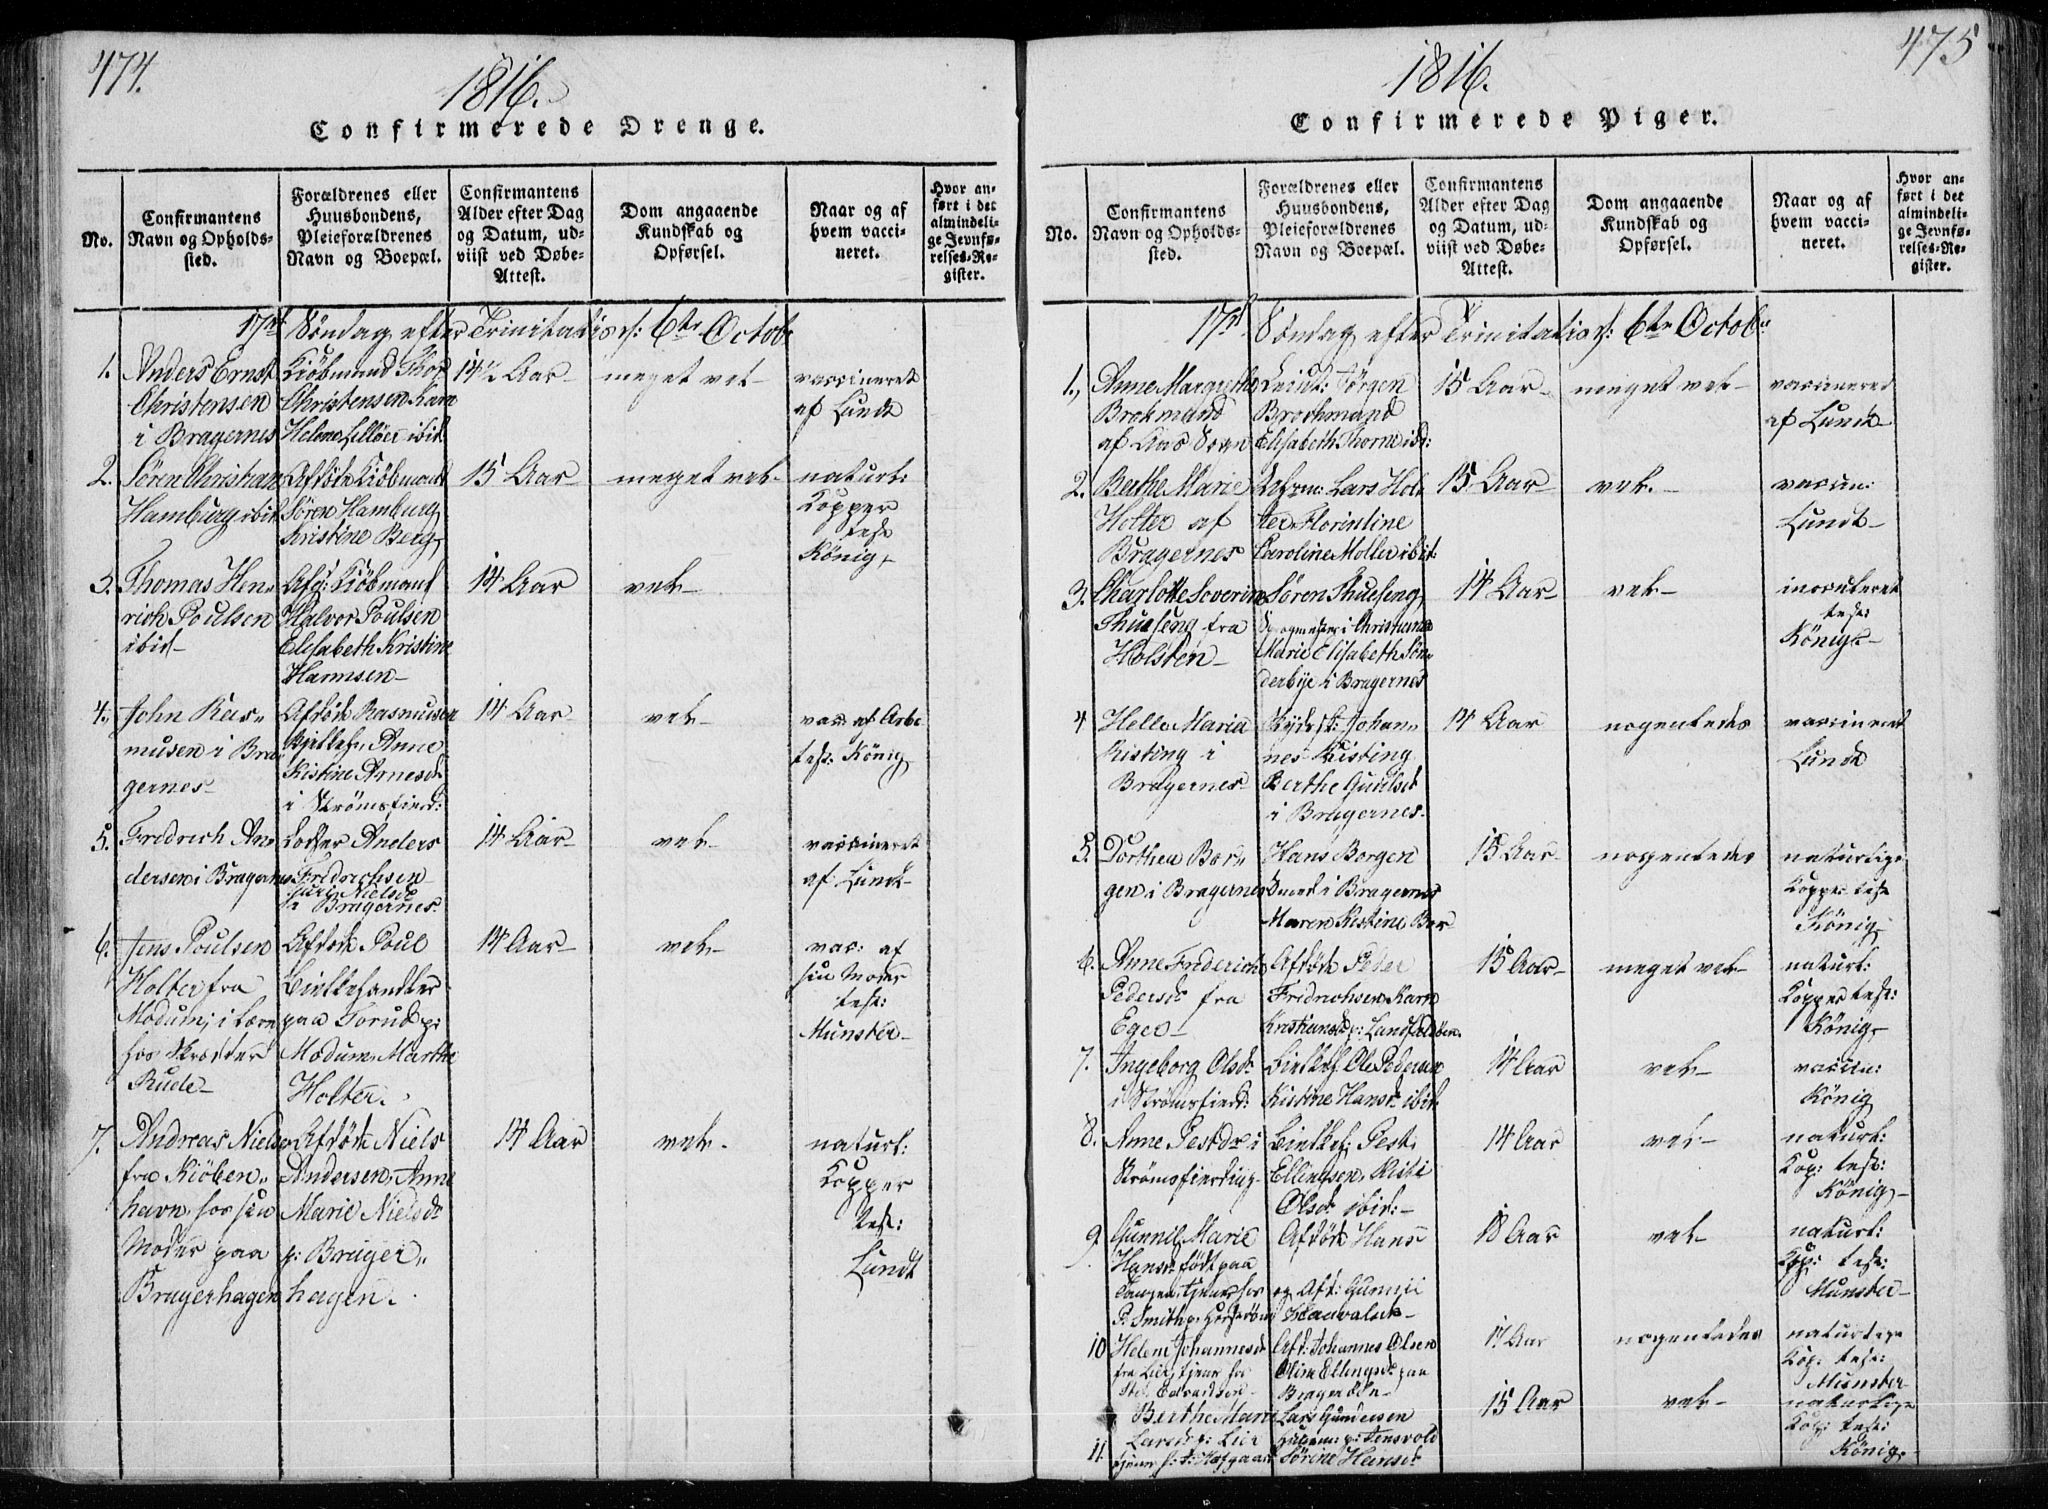 474.
1816.
Confirmerede Drenge.
No.
Confirmantens Navn og Opholds-sted.
Forældrenes eller Huusbondens, Pleieforældrenes Navn og Boepæl.
Confirmantens Alder efter Dag og Datum, ud-viist ved Døbe-Attest.
Dom angaaende Kundskab og Opførsel.
Naar og af hvem vacci-neret.
Hvor an-ført i det almindeli-ge Jevnfø-relses-Re-gister.
Søndag efter Trinitatis 6te Octobr
1. Anders Ernst
Christensen
i Bragernes
Kiöbmand Thor
Christensen Karn
Helene ibid.
14½ Aar
meget vel
vaccineret
af Lundt
2. Sören Christian
Hamburg ibid
Afdöde Kiöbmand
Sören Hamburg
Kristine Berg
15 Aar
meget vel
naturl:
Kopper
test
König
3. Thomas Hen-
rich Poulsen
ibid
Kiöbmand
Halvor Poulsen
Elisabeth Kristine
Harmsen
14 Aar
vel
4. John Ras-
musen i Bra-
gernes
Afdöde Rasmusen
Anne
Kistine Arnesd:
i Strömsfierd:
14 Aar
vel
vac: af Arbo
test: König
5. Fredrich An-
dersen i Bragernes
Anders
Fredrichsen
Nielsd
i Bragernes
14 Aar
vel
vaccineret
af Lundt
6. Jens Poulsen
Holter fra
Modum, i lære
hos Skrædder
Rude
Afdöde Poul
paa Torud p:
Modum Marthe
Holter.
14 Aar
vel
vac: af
sin Moder
test:
Munster
7. Andreas Nielsen
fra Kiöben-
havn, hos sin
Moder paa
Bragerhagen
Afdöde Niels
Andersen, Anne
Marie Nielsd:
p: Brager-
hagen.
14 Aar
vel.
naturl:
Kopper
test:
Lundt
475
1816.
Confirmerede Piger.
No.
Confirmantens Navn og Opholds-sted.
Forældrenes eller Huusbondens, Pleieforældrenes Navn og Boepæl.
Confirmantens Alder efter Dag og Datum, ud-viist ved Døbe-Attest.
Dom angaaende Kundskab og Opførsel.
Naar og af hvem vacci-neret.
Hvor an-ført i det almindeli-ge Jevnfø-relses-Re-gister.
Søndag efter Trinitatis 6te Octobr
1. Anne Margrethe
Brokmand
af Aas Sogn
Jörgen
Brochmand
Elisabeth Thorne ibd:
15 Aar
meget vel
vaccineret
af Lundt
2. Berthe Marie
Holter af
Bragernes
Lars Hol-
ter, Florintine
Caroline Moller ibid:
15 Aar
vel.
vaccin:
Lundt
3. Charlotte Severine
Thuesing fra
Holsten
Sören Thuesing
i Christiania
Marie Elisabeth Sön-
derbye i Bragernes
14 Aar
vel
inoculeret
test:
König
4 Helle Maria
Kisting i
Bragernes
Johan-
nes Kisting
Berthe Gulilsd
i Bragernes.
14 Aar
nogenledes
vaccineret
Lundt
5. Dorthea Bor-
gen i Bragernes
Hans Borgen
Smed i Bragernes
Maren Kistine Bor
15 Aar
nogenledes
naturlige
Kopper test
König
6. Anne Friderich
Pedersd: fra
Eger
Afdöde Peter
Fridrichsen Karn
Kristiansd p: Landfaldöen
15 Aar
meget vel
naturl:
Kopper test:
König
7. Ingeborg Olsd:
i Strömsfierd:
Ole Pedersen
Kistine Hansd: ibid.
14 Aar
vel
vaccin:
König
8. Anne Pestdr i
Strömsfierding
Pest:
Ellingsen, Kisti
Olsd: ibid:
14 Aar
vel
naturl:
Kop: test:
König
9 Gunnil Marie
Hansd: födt paa
Tangen, tjener hos
P. Smith p:
Afdöde Hans
og Afd: Gunnil
18 Aar
vel
naturl:
Kop: test:
Munster
10 Helene Johannesd
fra Lier, tjener hos
Afd: Johannes Olsen
Oline Ellingsd: paa
17 Aar
nogenledes
naturlige
Kop: test:
Munster
11. Berthe Marie
Larsd p: Lier
Lars Gundersen
p: Tensvold
Sörine Hansd:
15 Aar
vel
naturlige
Kop: test:
König